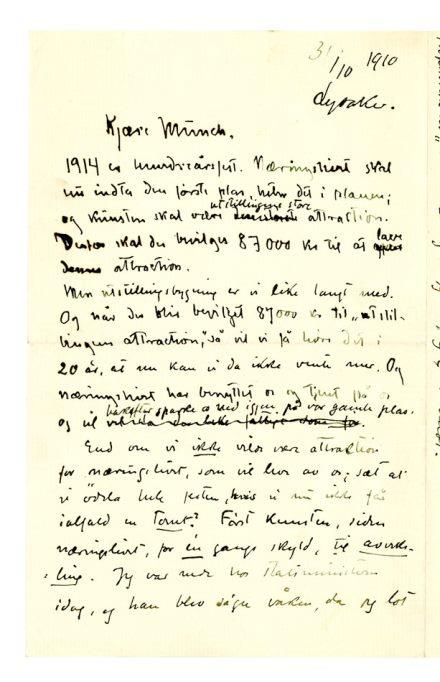 31/10 1910
Lysaker.
Kjære Munch.
1914 er hundreåret. Næringslivet skal
nu indta den første plas, heter det i planen;
og kunsten skal være utstillingens store attraction.
Desuten skal der bevilges 87000 kr til at lave
denne attraction.
Men utstillingsbygning er vi like langt med.
Og når der blir bevilget 87000 kr til "utstil-
lingens attraction," så vil vi få høre det i
20 år, at nu kan vi da ikke vente mer. Og
næringslivet har benyttet os og tjent på os
og vil bakefter sparke os ned igjen på vor gamle plas.
End om vi ikke vilde være attraktion
for næringslivet, som vil leve av os; sæt at
vi ødela hele festen, hvis vi nu ikke får
ialfald en tomt? Først kunsten, siden
næringslivet, for én gangs skyld, til avveks-
ling. Jeg var nede hos statsministeren
idag, og han blev så, da jeg lot